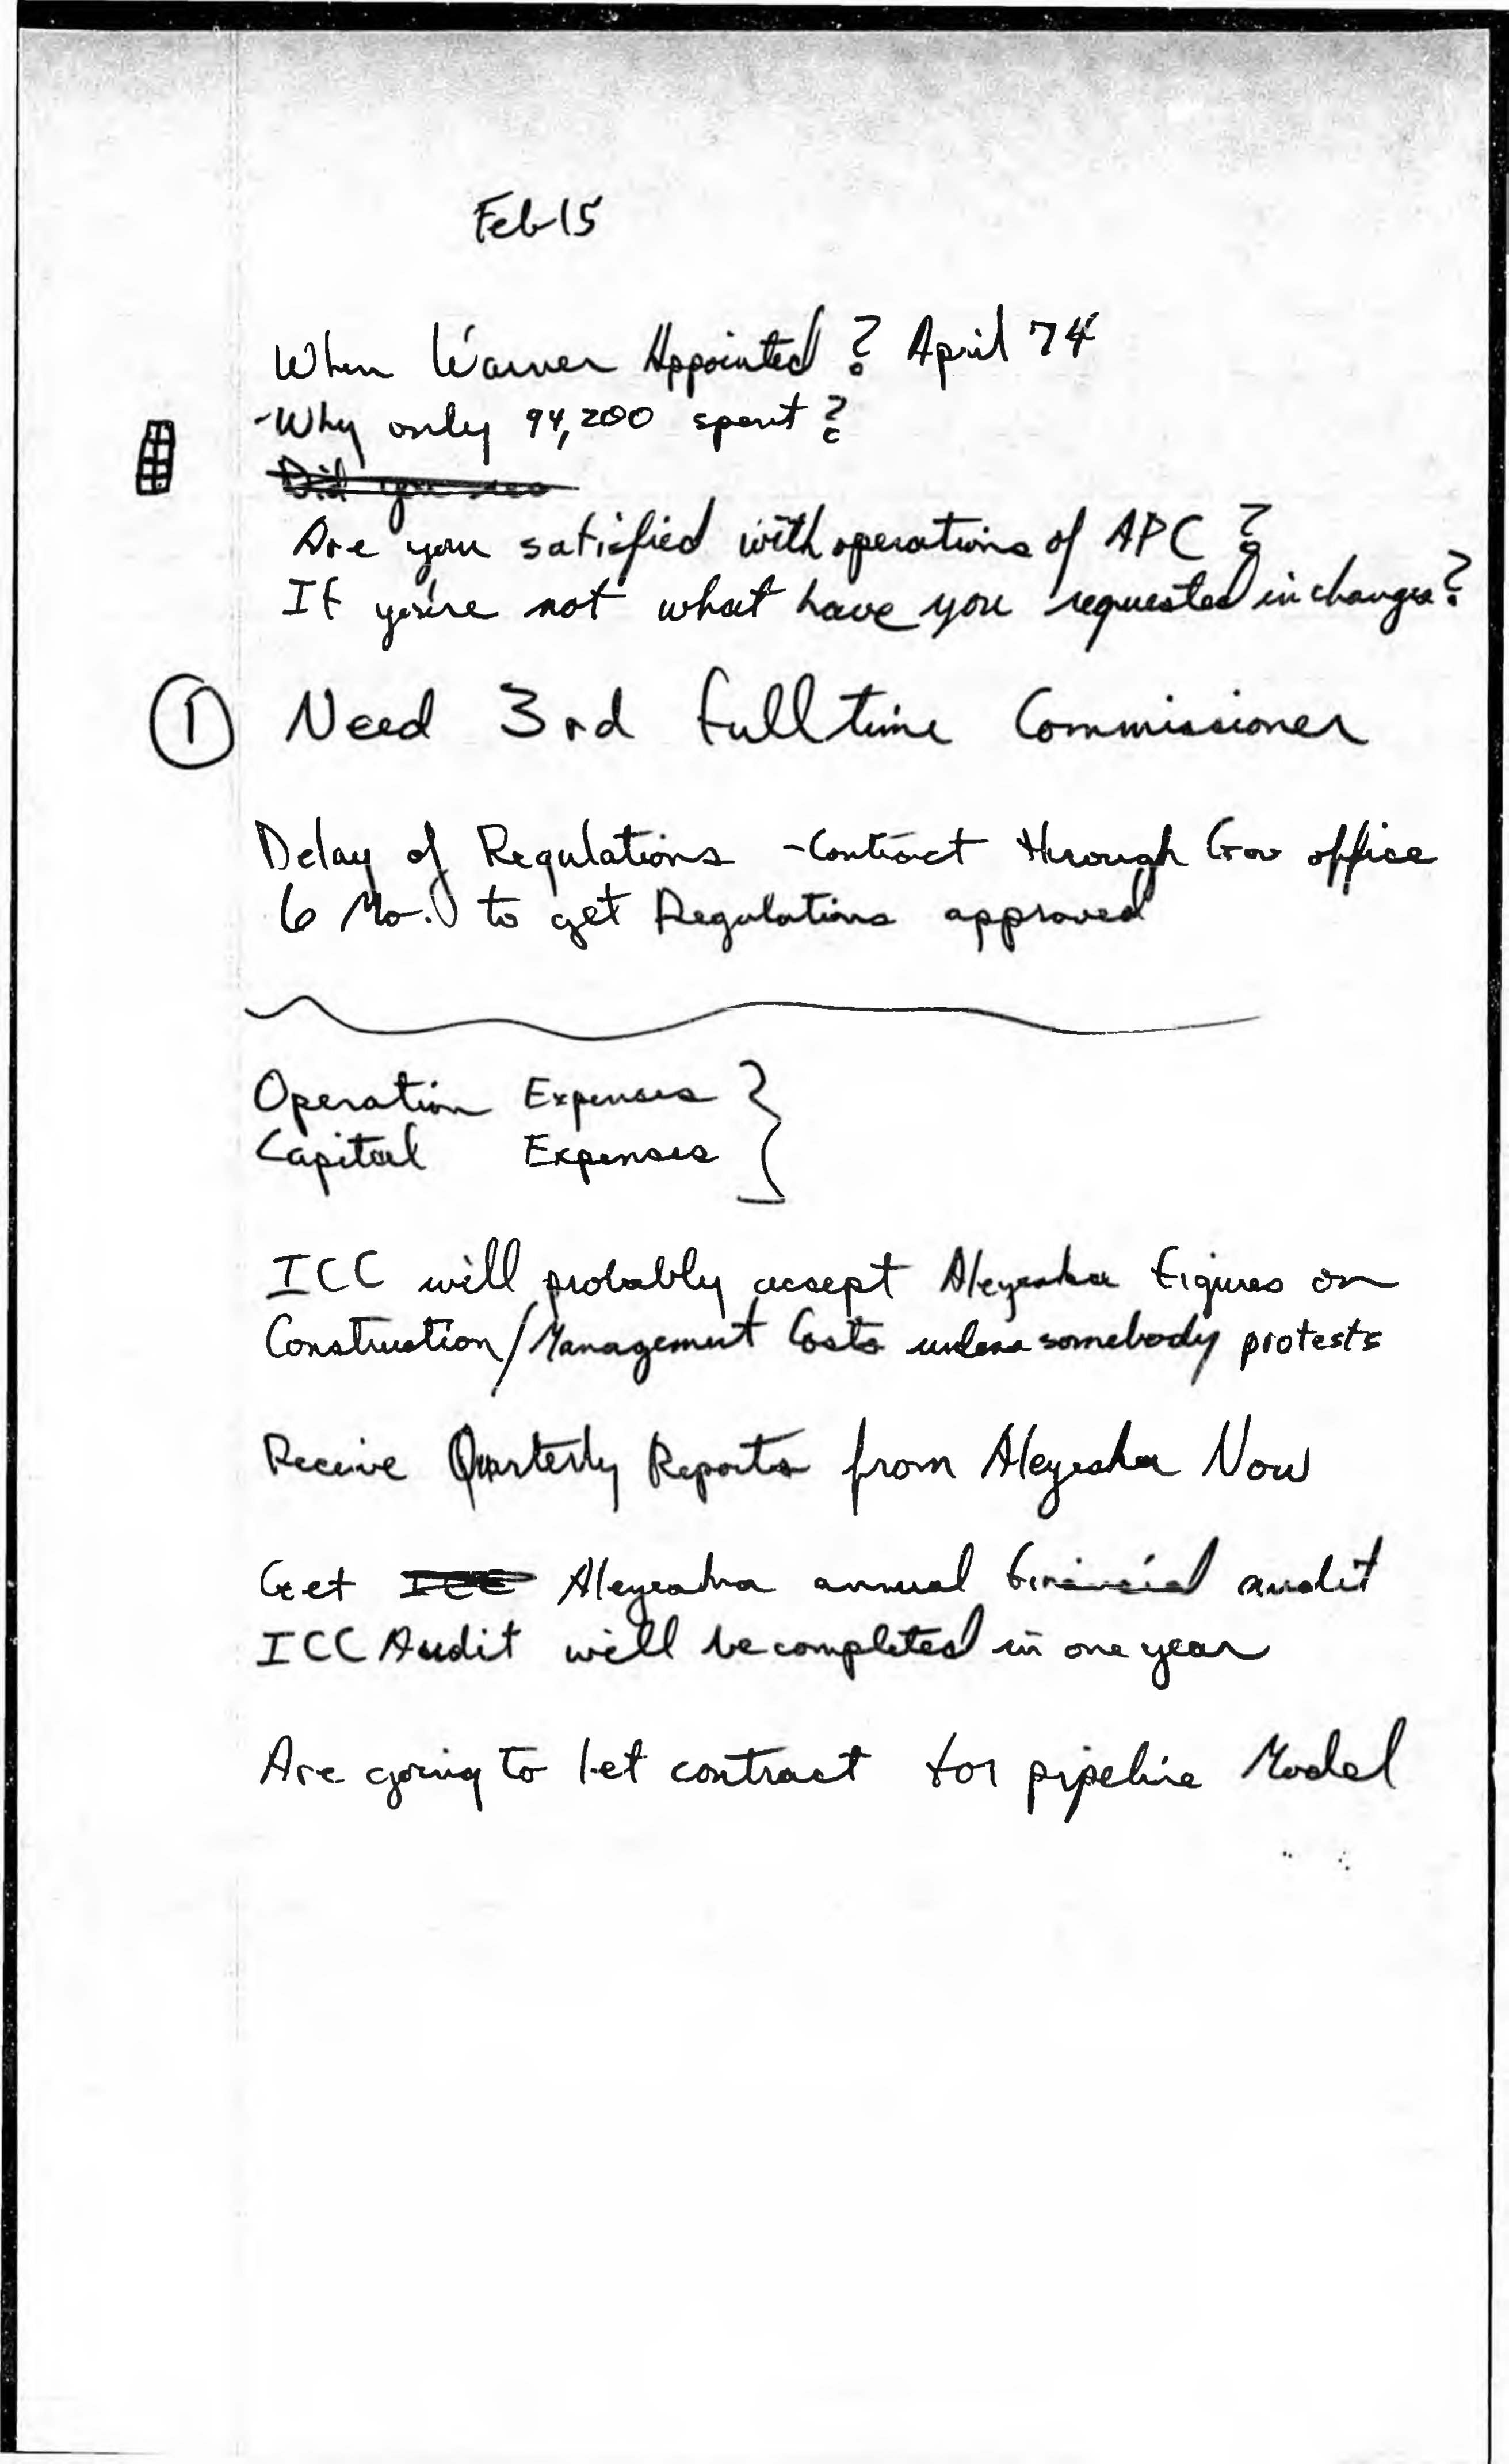 Feb 15
When Warner Appointed? April 74
-Why only 94,200 spent?
Did you see
Are you satisfied with operations of APC?
If you're not what have you requested in changes?
① Need 3rd full time Commissioner
Delay of Regulations - Contract through Gov office
6 Mo. to get Regulations approved
Operation Expenses
Capital Expenses
ICC will probably accept Aleyeska figures on
Construction/Management Costs unless somebody protests
Receive Quarterly Reports from Aleyeska Now
Get ICC Aleyeska annual financial audit
ICC Audit will be completed in one year
Are going to let contract for pipeline Model